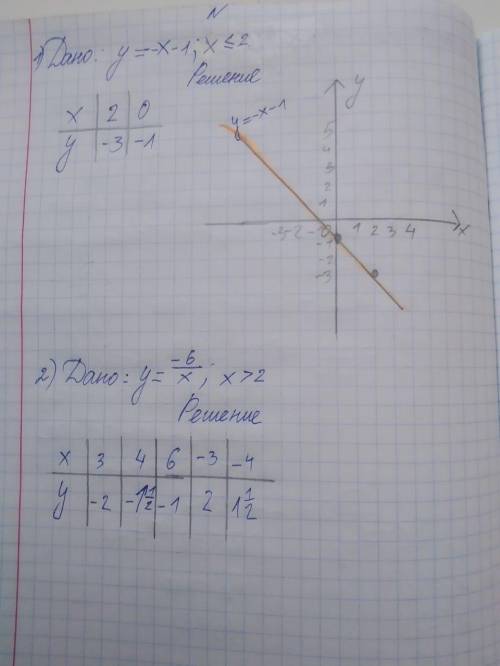 N
1) Дано: y = -x-1; x ≤ 2
Решение
x 2 0
y -3 -1
y
y = -x-1
5
4
3
2
1
-3 -2 -1 0 1 2 3 4 x
-1
-2
-3
2) Дано: y = -6/x; x > 2
Решение
x 3 4 6 -3 -4
y -2 -1 1/2 -1 2 1 1/2